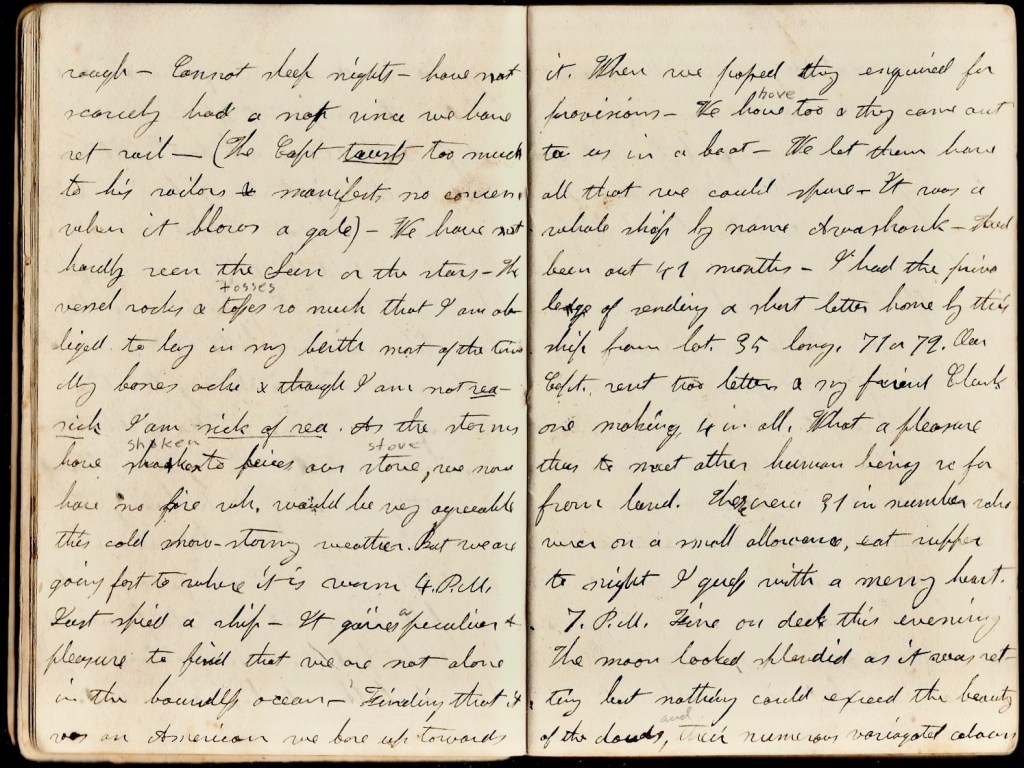 rough – Cannot sleep nights – have not
scarcely had a nap since we have
set sail – (The Capt trusts too much
to his sailors & manifests no concern
when it blows a gale) – We have not
hardly seen the Sun or the stars – The
tosses
vessel rocks & tosses so much that I am ob-
liged to lay in my berth most of the time
My bones ache & though I am not sea-
sick I am sick of sea. As the storms
shaken stove
have shaken to peices our stove, we now
have no fire wh. would be very agreeable
this cold snow-stormy weather. But we are
going fast to where it is warm 4. P.M.
Just spied a ship – It gives a peculiar
pleasure to find that we are not alone
in the boundless ocean – Finding that it
was an American we bore up towards
it. When we passed they enquired for
hove
provisions – We hove too & they came out
to us in a boat – We let them have
all that we could spare – It was a
whale ship by name Awashonk – Had
been out 41 months – I had the privi
lege of sending a short letter home by this
ship from lat. 35 long. 71 or 72. Our
Capt. sent two letters & my friend Clark
one making 4 in all. What a pleasure
thus to meet other human being so far
from land. These were 31 in number who
were on a small allowance, eat supper
to night I guess with a merry heart.
7. P.M. Fine on deck this evening
The moon looked splendid as it was set-
ting but nothing could exceed the beauty
and
of the clouds, their numerous variagated colours